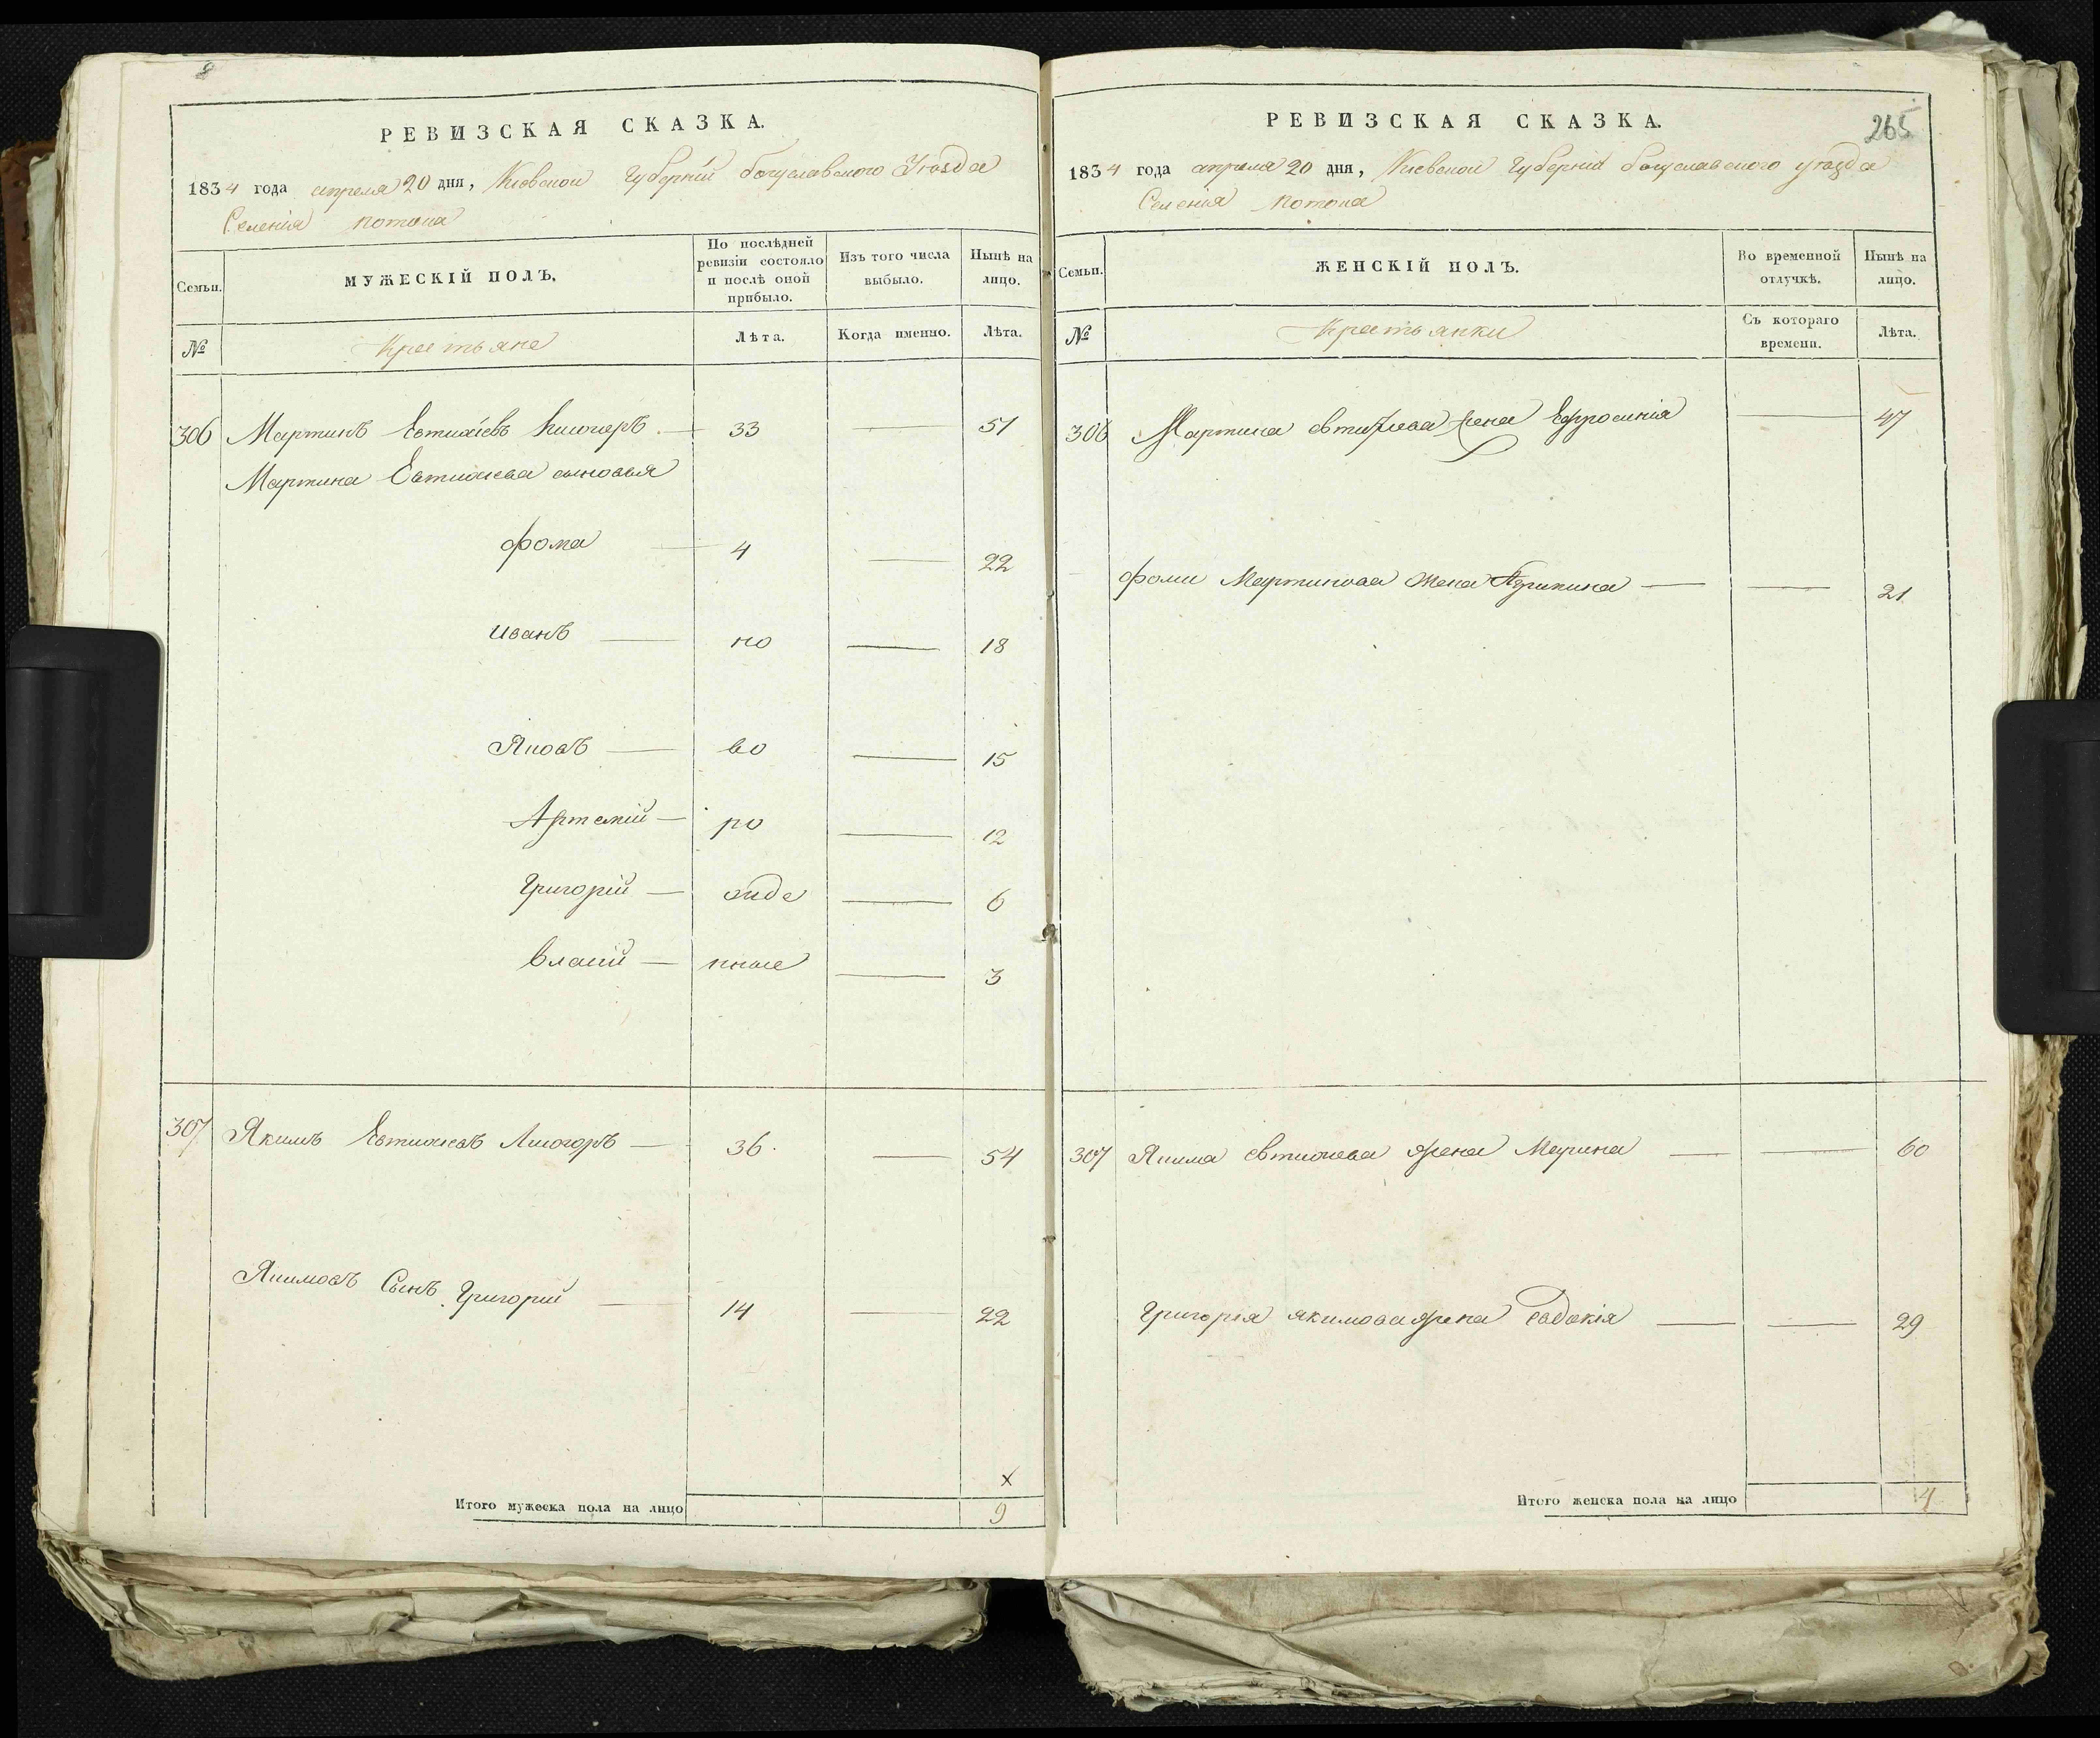 РЕВИЗСКАЯ СКАЗКА.
1834 года апреля 20 дня, Киевской Губерніи богуславского Уезда
Селенія потока
Семьи.
МУЖЕСКІЙ ПОЛЪ.
По послѣдней ревизіи состояло и послѣ оной прибыло.
Изъ того числа выбыло.
Нынѣ на лицо.
№
Крестьяне
Лѣта.
Когда именно.
Лѣта.
306 Мартинъ Евтихіевъ — 33 — 51
Мартина Евтихиева сыновья
фома — 4 — 22
иванъ — но — 18
Яковъ — во — 15
Артемій — ро — 12
Григорій — жде — 6
власій — нные — 3
307 Якимъ Евтихиевъ — 36. — 54
Якимовъ Сынъ Григорий — 14 — 22
х
Итого мужеска пола на лицо 9
265
РЕВИЗСКАЯ СКАЗКА.
1834 года апреля 20 дня, Киевской Губерніи богуславского уезда
Селенія потока
Семьи.
ЖЕНСКІЙ ПОЛЪ.
Во временной отлучкѣ.
Нынѣ на лицо.
№
Крестьянки
Съ котораго времени.
Лѣта.
306 Мартина евтихиева жена Ефросинія — 47
фоми Мартинова жена Агрипина — — 21
307 Якима евтихиева жена Марина — — 60
Григорія якимова жена евдокія — — 29
Итого женска пола на лицо 4